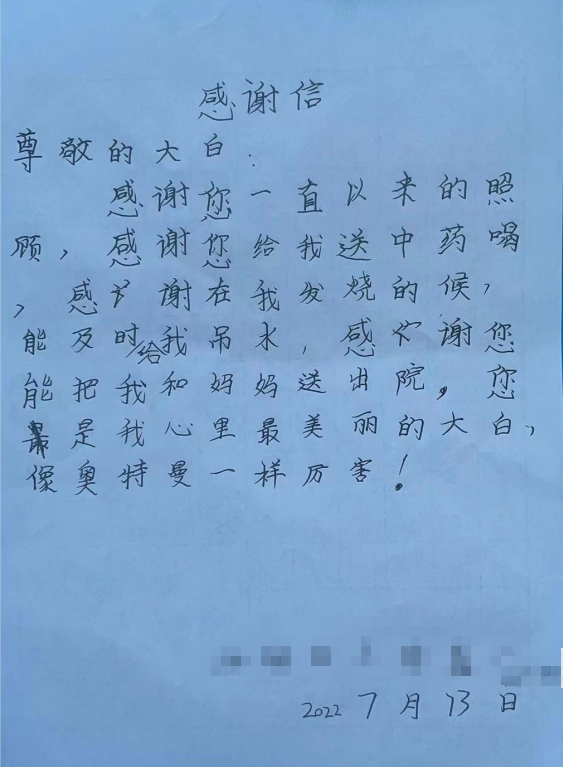 感谢信
尊敬的大白:
感谢您一直以来的照
顾,感谢您给我送中药喝
,感谢在我发烧的候,
能及时给我吊水,感谢您
能把我和妈妈送出院。您
是我心里最美丽的大白,
像奥特曼一样厉害!
2022 7月13日